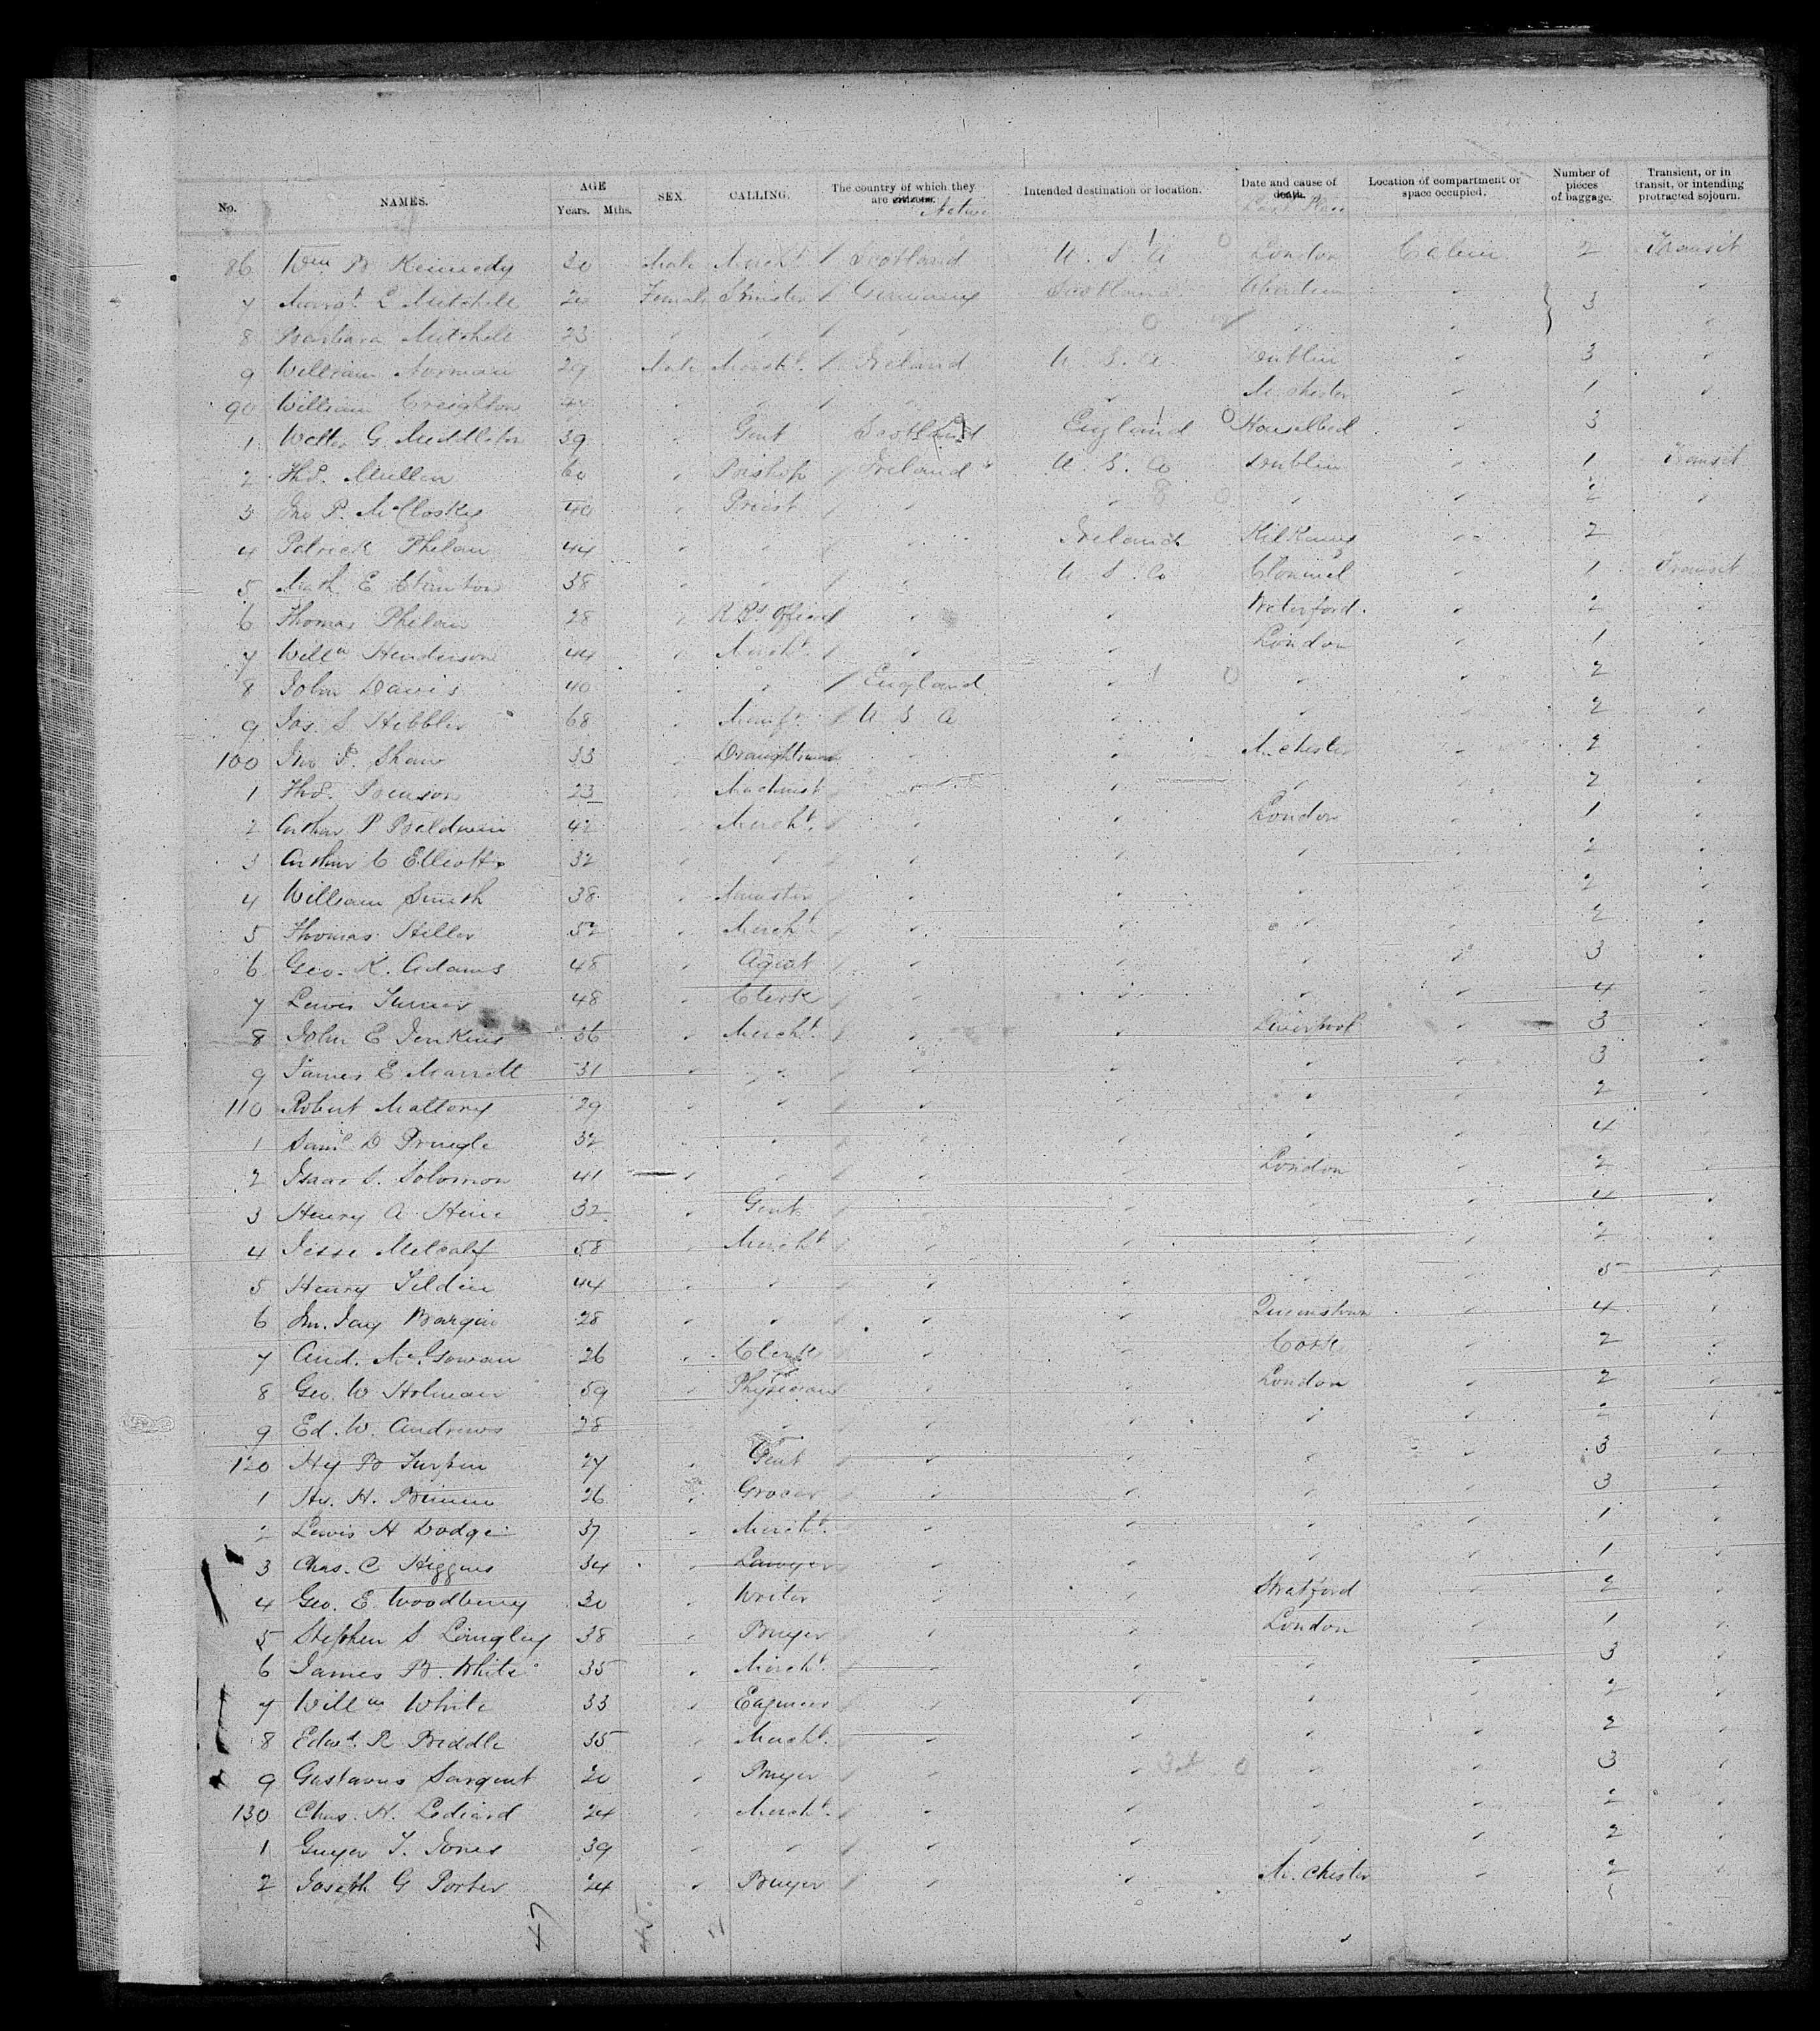 No. NAMES. AGE Years. Mths. SEX. CALLING. The country of which they are citizens. Native Intended destination or location. Date and cause of death. Last Place Location of compartment or space occupied. Number of pieces of baggage. Transient, or in transit, or intending protracted sojourn.
86 Wm B Kennedy 30 Male Mercht / Scotland U. S. A London Cabin 2 Transit
7 Margt E Mitchell 24 Female Spinster / Germany Scotland Aberdeen " } 3 "
8 Barbara Mitchell 23 " " / " " " "
9 William Norman 29 Male Mercht. / Ireland U. S. A Dublin " 3 "
90 William Creighton " " / " " M.chester " 1 "
1 G Middleton 39 " Gent Scotland England Hounslbed " 3
2 Thos. Mullen 60 " Bishop / Ireland U. S. A Dublin " 1 Transit
3 Jno P. McCloskey 40 " Priest / " " " " 2 "
4 Patrick Phelan 44 " " / " Ireland Kilkenny " 2
5 Math. E Stanton 38 " " / " U. S. A Clonmel " 1 Transit
6 Thomas Phelan 28 " R Rd Official " " Waterford. " 2 "
7 Willm Henderson 44 " Mercht. / " " London " 1 "
8 John Davis 40 " " / England " " " 2 "
9 Jas. S. Hibbler 68 " Manfr. / U S A " " " 2 "
100 Jno P. Shaw 33 " Draughtsman " " M.chester " 2 "
1 Thos. Benson 23 " Machinist " " " " 2 "
2 Arthur P Baldwin 42 " Mercht. / " " London " 1 "
3 Arthur C Elliott 32 " " / " " " " 2 "
4 William Smith 38 " Minister / " " " " 2 "
5 Thomas Hiller 52 " Mercht. / " " " " 2 "
6 Geo. K. Adams 48 " Agent / " " " " 3 "
7 Lewis Turner 48 " Clerk / " " " " 4 "
8 John E Jenkins 36 " Mercht. / " " Liverpool " 3 "
9 James E Marrett 31 " " / " " " " 3 "
110 Robert Mallory 29 " " / " " " " 2 "
1 Saml D Pringle 32 " " / " " " " 4 "
2 Isaac S. Solomon 41 " " / " " London " 2 "
3 Henry A Hine 32 " Gent / " " " " 4 "
4 Jesse Metcalf 58 " Mercht / " " " " 2 "
5 Henry Tilden 44 " " / " " " " 5 "
6 Jno. Jay 28 " " / " " Queenstown " 4 "
7 And. McGowan 26 " Clerk / " " Cork " 2 "
8 Geo. W Holman 59 " Physician " " London " 2 "
9 Ed. W. Andrews 28 " " / " " " " 2 "
120 Hy B Turpin 27 " Gent / " " " " 3 "
1 Hy. H. 26 " Grocer / " " " " 3 "
2 Lewis H Dodge 37 " Mercht. / " " " " 1 "
3 Chas. C Higgins 34 " Lawyer / " " " " 1 "
4 Geo. E Woodberry 30 " Writer / " " Stratford " 2 "
5 Stephen S Langley 38 " Buyer / " " London " 1 "
6 James B. White 35 " Mercht. / " " " " 3 "
7 Willm White 33 " Engineer / " " " " 2 "
8 Edwd. R Biddle 35 " Mercht. / " " " " 2 "
9 Gustavus Sargent 20 " Buyer / " " " " 3 "
130 Chas. H. Lediard 24 " Mercht. / " " " " 2 "
1 Guyer T. Jones 39 " " / " " " " 2 "
2 Joseph G Porter 24 " Buyer / " " M.chester " 2 "
47 45